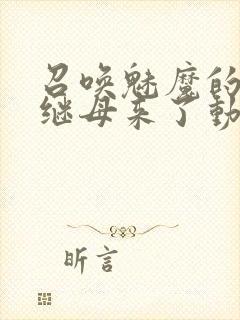 召唤魅魔的
继母来了動
昕言